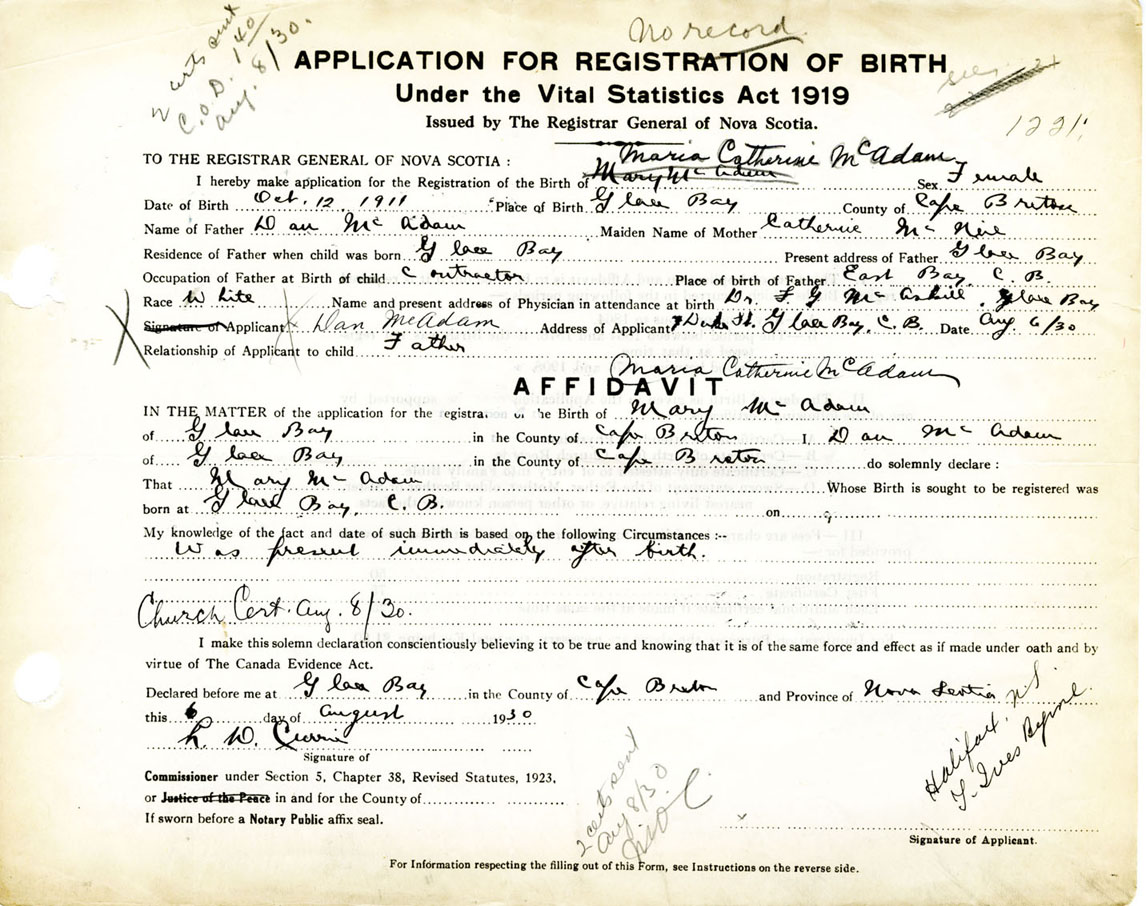 No record.
2 certs sent
C.O.D. 1 40
Aug. 8/30.
APPLICATION FOR REGISTRATION OF BIRTH
Under the Vital Statistics Act 1919
Issued by The Registrar General of Nova Scotia.
1221
Maria Catherine McAdam
TO THE REGISTRAR GENERAL OF NOVA SCOTIA :
I hereby make application for the Registration of the Birth of Mary McAdam Sex Female
Date of Birth Oct. 12, 1911 Place of Birth Glace Bay County of Cape Breton
Name of Father Dan McAdam Maiden Name of Mother Catherine McNeil
Residence of Father when child was born Glace Bay Present address of Father Glace Bay
Occupation of Father at Birth of child Contractor Place of birth of Father East Bay, C.B.
Race White Name and present address of Physician in attendance at birth Dr. F G McAskill, Glace Bay
X Signature of Applicant X Dan McAdam Address of Applicant 7 St. Glace Bay, C.B. Date Aug 6/30
Relationship of Applicant to child Father
Maria Catherine McAdam
AFFIDAVIT
IN THE MATTER of the application for the registra. of the Birth of Mary McAdam
of Glace Bay in the County of Cape Breton I, Dan McAdam
of Glace Bay in the County of Cape Breton do solemnly declare :
That Mary McAdam Whose Birth is sought to be registered was
born at Glace Bay, C.B. on
My knowledge of the fact and date of such Birth is based on the following Circumstances :--
Was present immediately after birth.
Church Cert. Aug. 8/30.
I make this solemn declaration conscientiously believing it to be true and knowing that it is of the same force and effect as if made under oath and by
virtue of The Canada Evidence Act.
Declared before me at Glace Bay in the County of Cape Breton and Province of Nova Scotia
this 6 day of August 1930
L. D. Currie
Signature of
Commissioner under Section 5, Chapter 38, Revised Statutes, 1923,
or Justice of the Peace in and for the County of
If sworn before a Notary Public affix seal.
2 certs sent
Aug 8/30
Halifax, NS
L. Ives Byrne
Signature of Applicant.
For Information respecting the filling out of this Form, see Instructions on the reverse side.